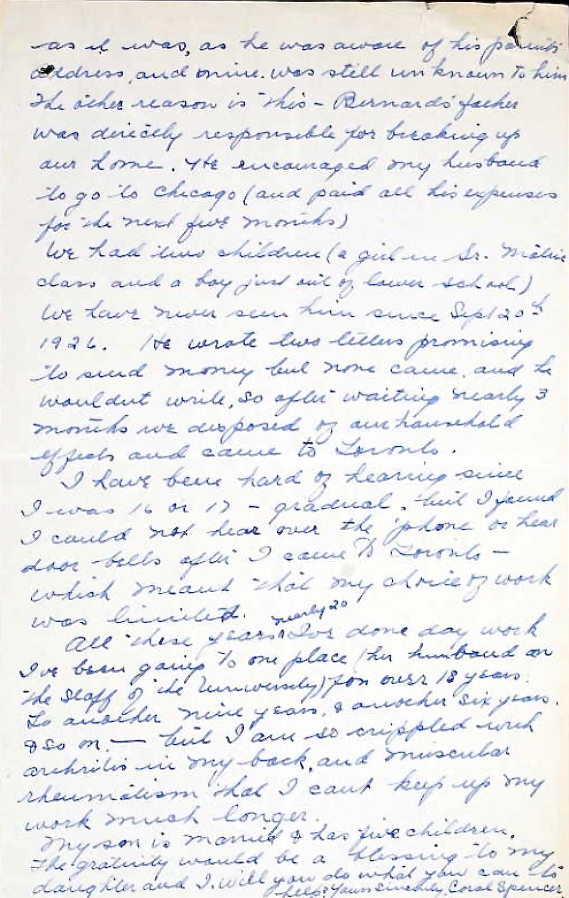 as it was, as he was aware of his parents
address, and mine was still unknown to him
The other reason is this - Bernard's father
was directly responsible for breaking up
our home. He encouraged my husband
to go to Chicago (and paid all his expenses
for the next five months)
We had two children (a girl in Sr. Matric
class and a boy just out of lower school)
We have never seen him since Sept 20th
1926. He wrote two letters promising
to send money but none came, and he
wouldnt write, so after waiting nearly 3
months we disposed of our household
effects and came to Toronto.
I have been hard of hearing since
I was 16 or 17 - gradual, but I found
I could not hear over the 'phone or hear
door bells after I came to Toronto -
which meant that my choice of work
was limited.
All these years nearly 20 I've done day work
I've been going to one place (her husband on
the staff of the University) for over 18 years.
To another nine years, & another six years.
& so on. - but I am so crippled with
arthritis in my back, and muscular
rheumatism that I cant keep up my
work much longer.
My son is married & has five children.
The gratuity would be a blessing to my
daughter and I. Will you do what you can to
help? Yours sincerely, Coral Spencer